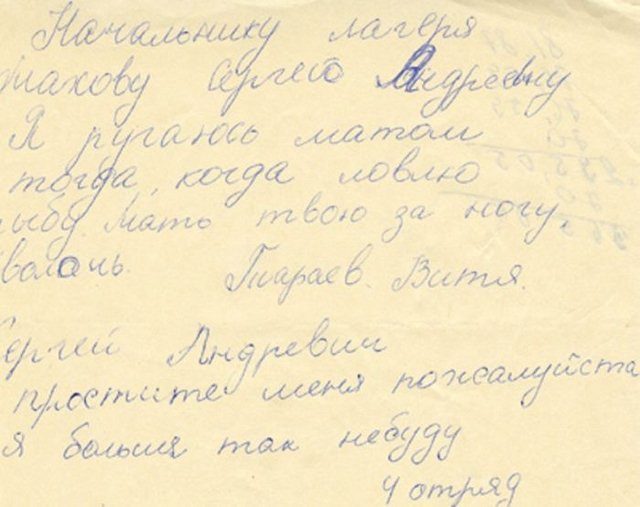 Начальнику лагеря
макову Сергею Андреевну
Я ругаюсь матом
тогда, когда ловлю
рыбу. Мать твою за ногу,
сволочь. Тараев. Витя.
Сергей Андревич
простите меня пожалуйста
я больше так небуду
4 отряд